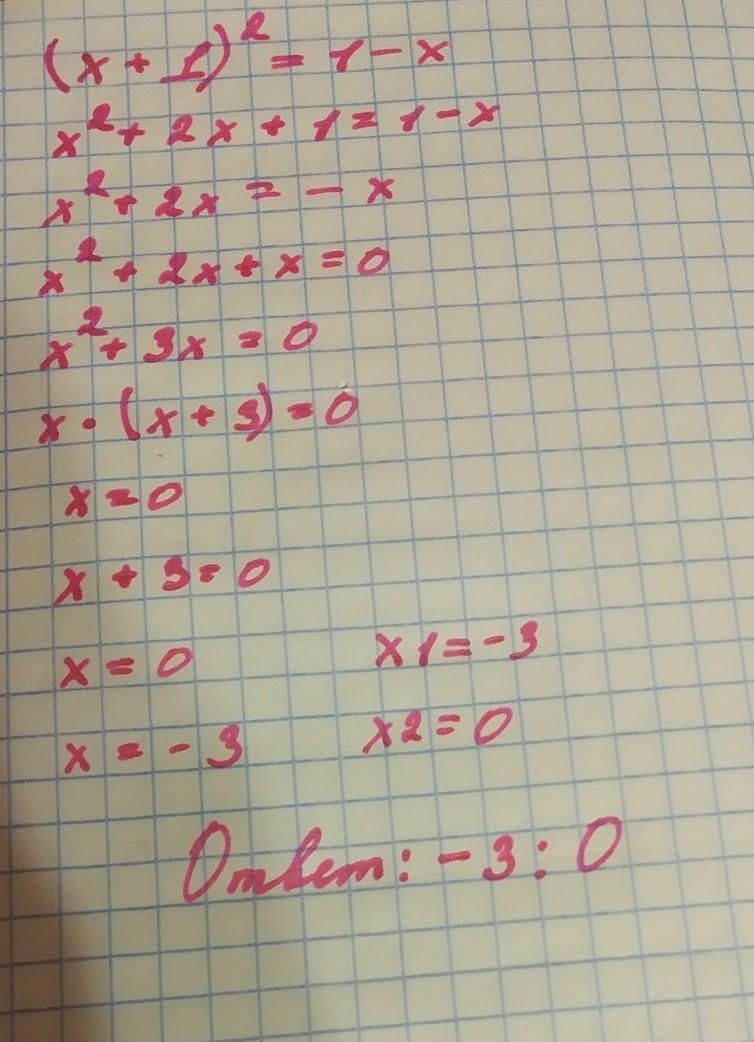 (x + 1)² = 1 - x
x² + 2x + 1 = 1 - x
x² + 2x = - x
x² + 2x + x = 0
x² + 3x = 0
x · (x + 3) = 0
x = 0
x + 3 = 0
x = 0 x1 = -3
x = - 3 x2 = 0
Ответ: - 3 : 0